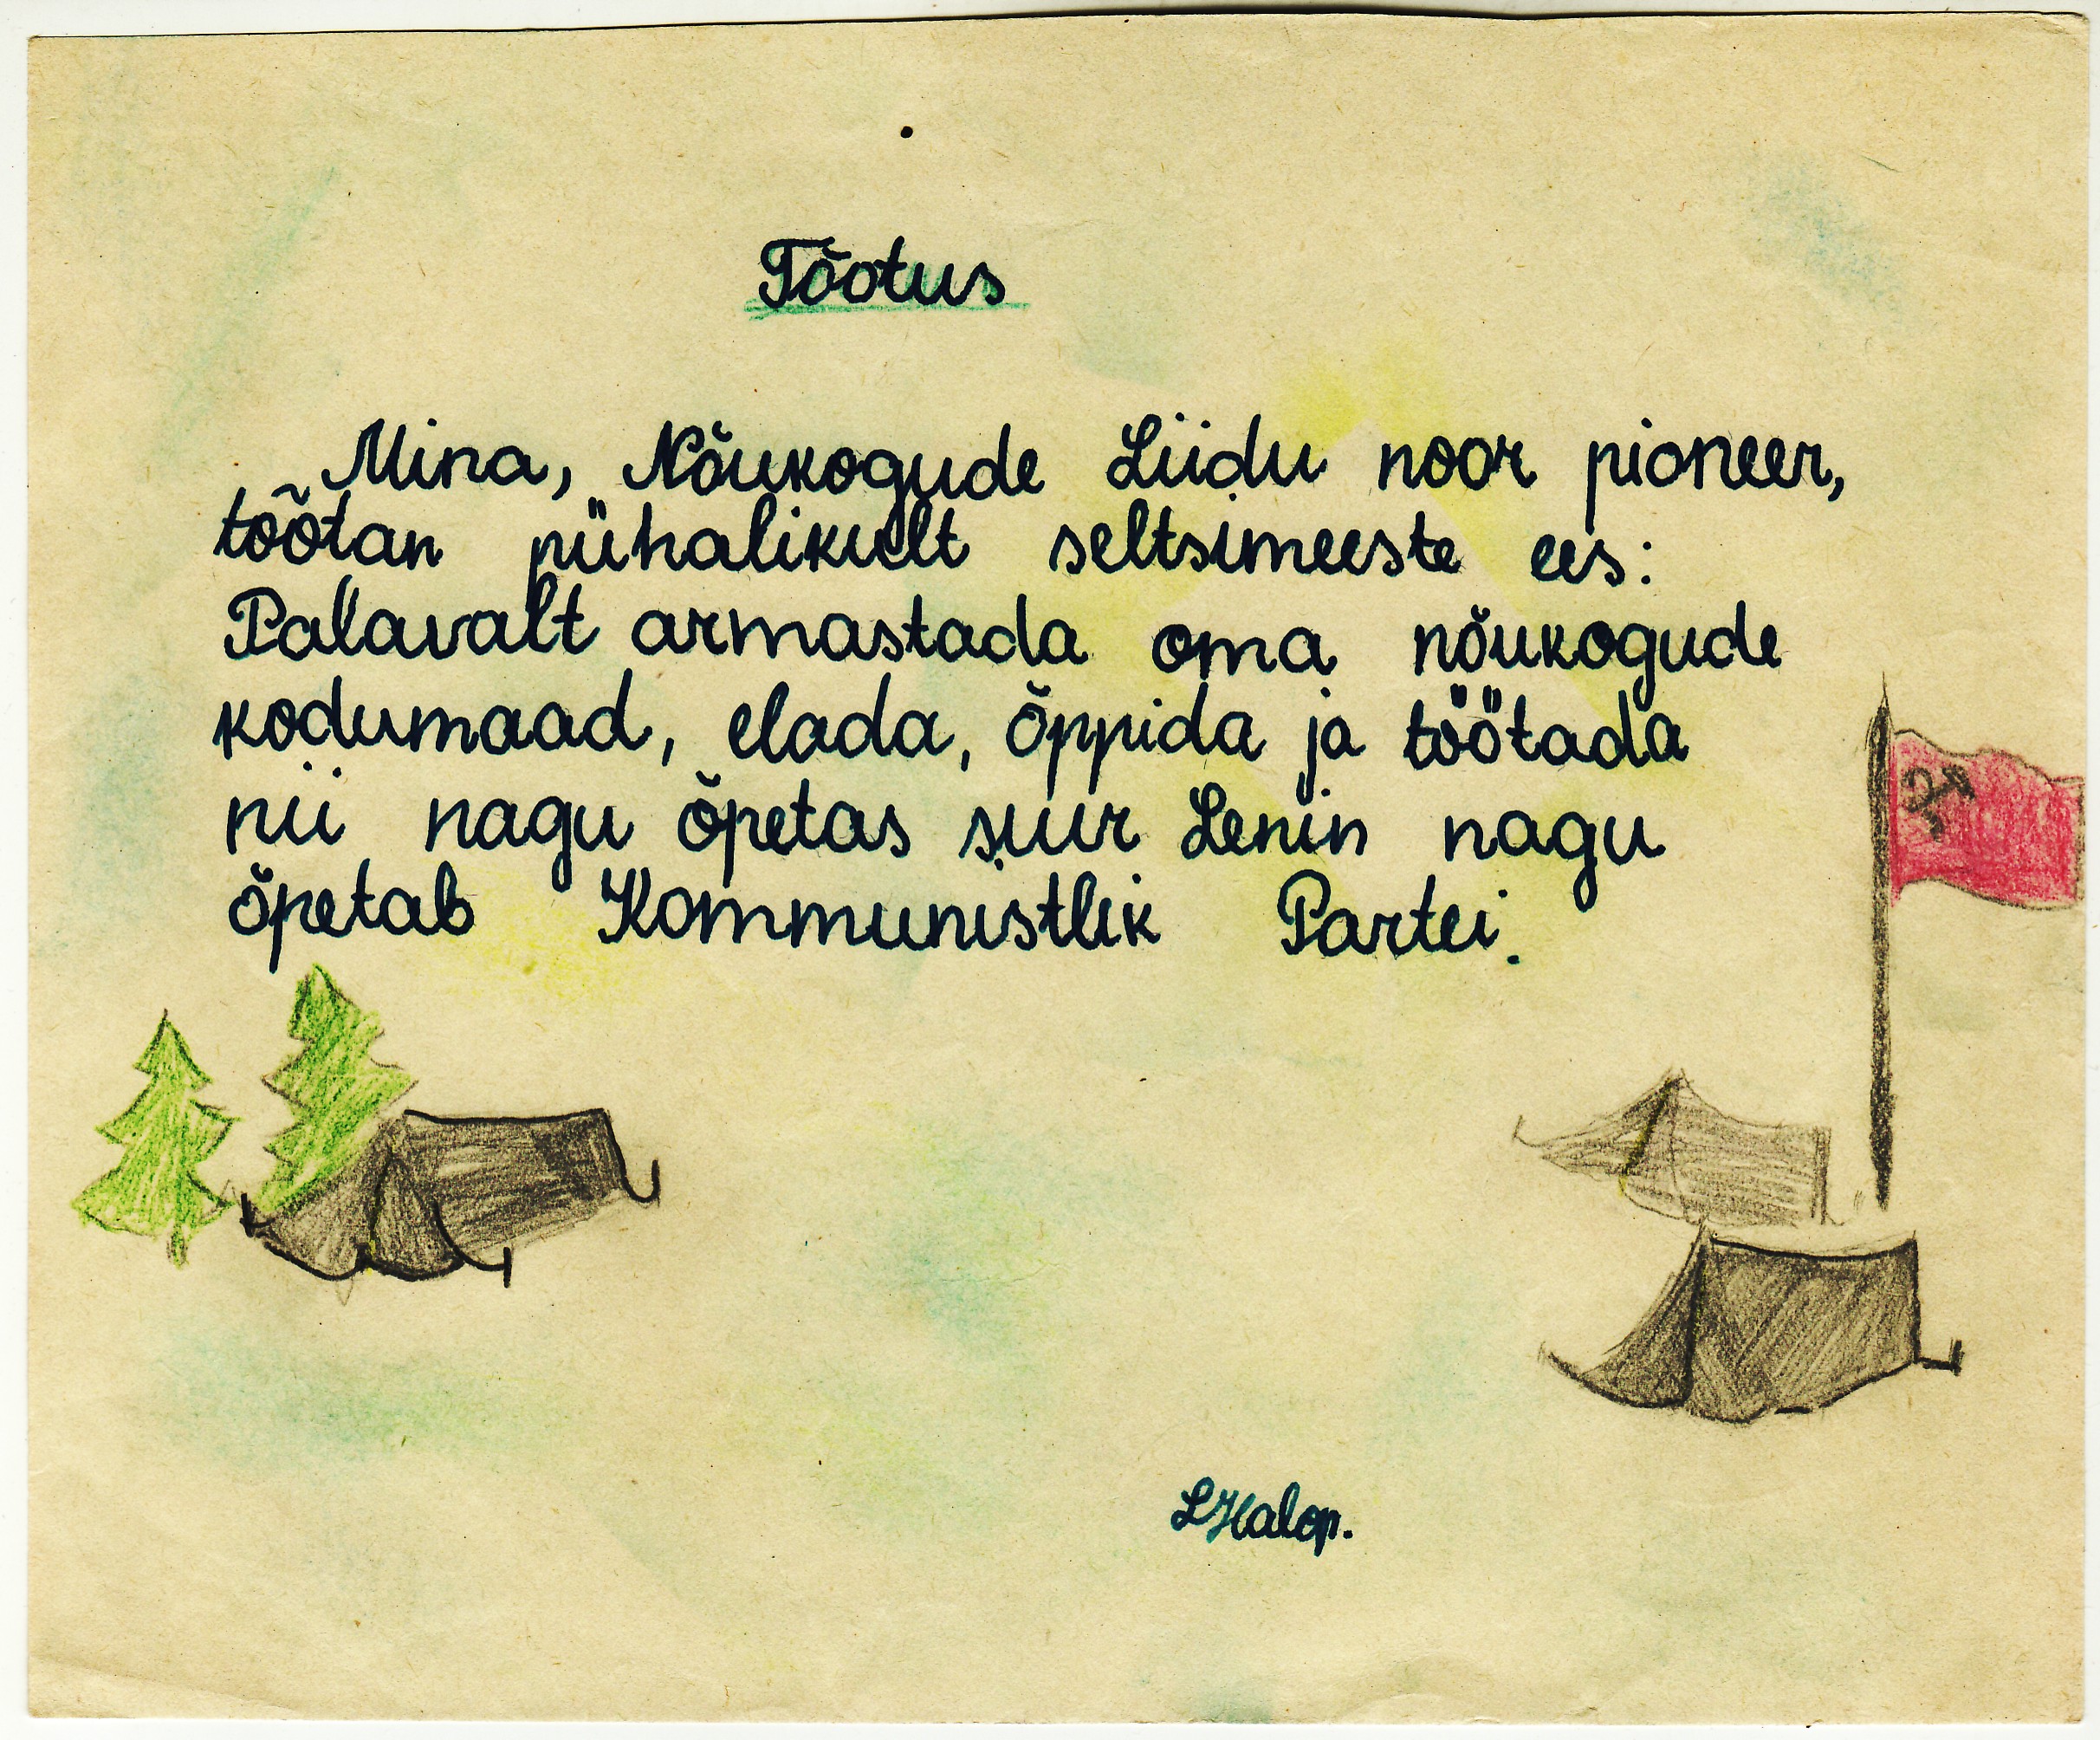 Tõotus
Mina, Nõukogude Liidu noor pioneer,
tõõtan pühalikult seltsimeeste ees:
Palavalt armastada oma nõukogude
kodumaad, elada, õppida ja töötada
nii nagu õpetas suur Lenin nagu
õpetab Kommunistlik Partei.
LHalop.